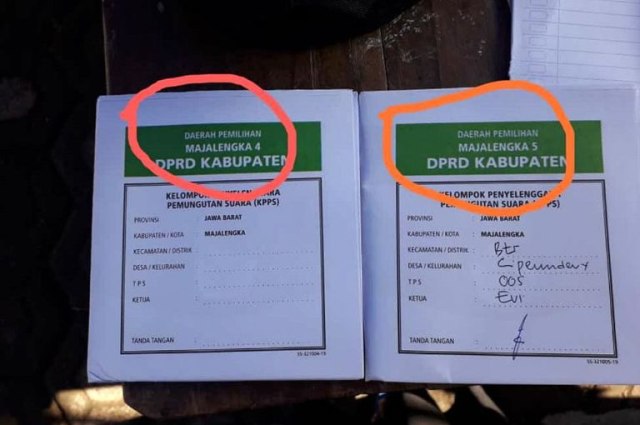 DAERAH PEMILIHAN
MAJALENGKA 4
DPRD KABUPATEN
KELOMPOK PENYELENGGARA
PEMUNGUTAN SUARA (KPPS)
PROVINSI JAWA BARAT
KABUPATEN / KOTA MAJALENGKA
KECAMATAN / DISTRIK
DESA / KELURAHAN
T P S
KETUA
TANDA TANGAN
SS-321004-19
DAERAH PEMILIHAN
MAJALENGKA 5
DPRD KABUPATEN
KELOMPOK PENYELENGGARA
PEMUNGUTAN SUARA (KPPS)
PROVINSI JAWA BARAT
KABUPATEN / KOTA MAJALENGKA
KECAMATAN / DISTRIK
DESA / KELURAHAN
T P S 005
KETUA Evi
TANDA TANGAN
SS-321005-19